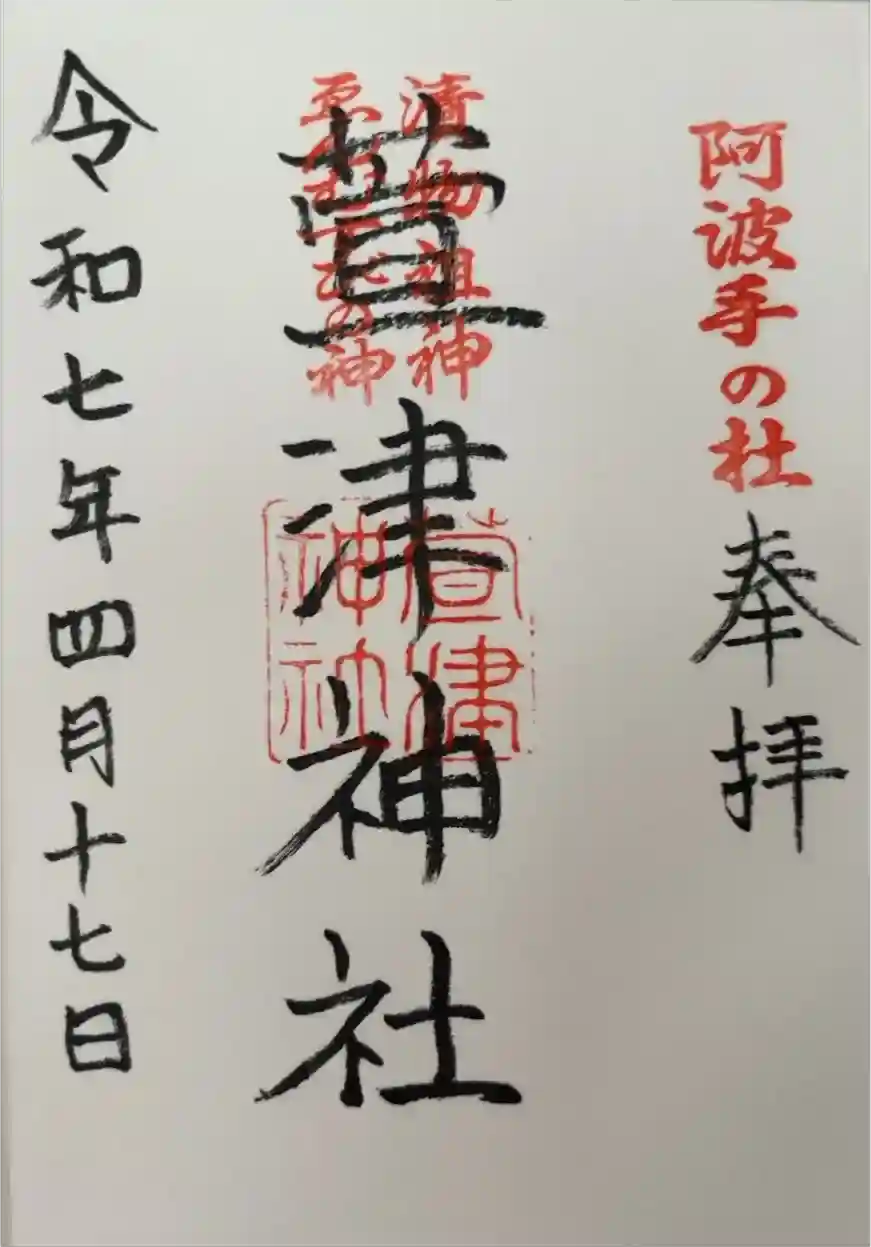 阿波手の杜
奉拝
漬物祖神
ゑんむすびの神
萱津神社
萱津
神社
令和七年四月十七日